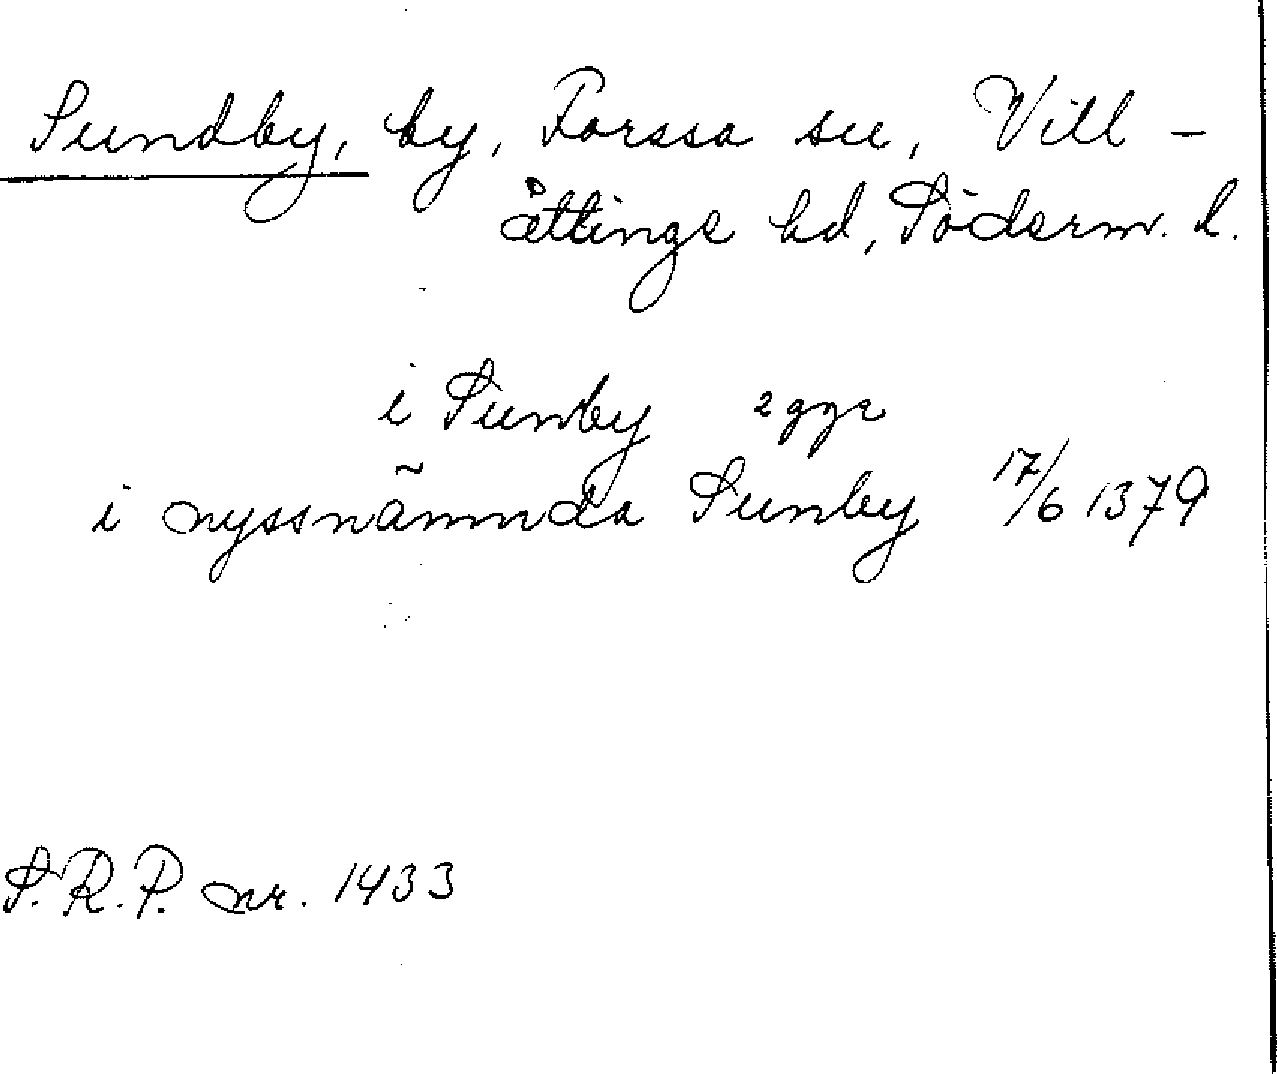 Sundby, by, Forssa sn, Vill-
åttinge hd, Söderm. l.
i Sunby 2 gge
i nyssnämnda Sunby 17/6 1379
S.R.P. nr. 1433